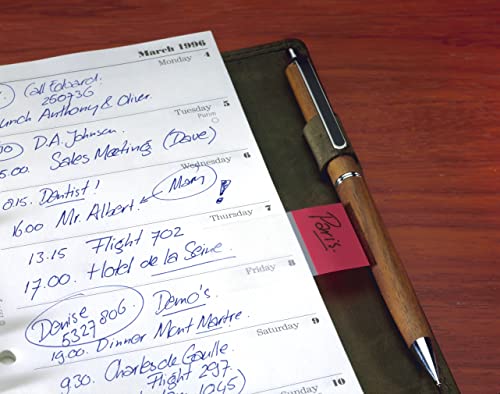 March 1996
Monday 4
Call Edward.
260736
Lunch Anthony & Oliver.
Tuesday 5
Purim
D.A. Johnson
5.00. Sales Meeting (Dave)
Wednesday 6
8.15. Dentist!
Mam
1600 Mr. Albert. !
Thursday 7
13.15 Flight 702
17.00. Hotel de la Seine
Paris.
Friday 8
Denise Demo's
5327806
19.00. Dinner Mont Martre.
Saturday 9
9.30. Charles de Gaulle.
Flight 297.
10.45)
Sunday 10